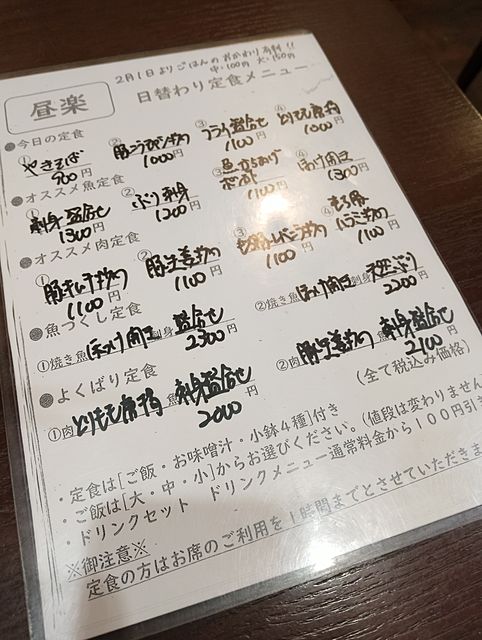 2月1日よりごはんのおかわり有料!!
中・100円 大・150円
昼楽
日替わり定食メニュー
●今日の定食
①やきそば 900円
② 1000円
③フライ盛合せ 1100円
④とりもも唐揚 1000円
●オススメ魚定食
①刺身盛合せ 1300円
②ぶり刺身 1200円
③魚からあげポン酢 1100円
④ほっけ開き 1300円
●オススメ肉定食
① 1100円
②豚生姜焼 1100円
③ 1100円
④ 1100円
●魚づくし定食
①焼き魚ほっけ開き 刺身盛合せ 2300円
②焼き魚ほっけ開き 刺身天然ぶり 2200円
●よくばり定食
①肉とりもも唐揚 魚刺身盛合せ 2000円
②肉豚生姜焼 魚刺身盛合せ 2100円
(全て税込み価格)
・定食は[ご飯・お味噌汁・小鉢4種]付き
・ご飯は[大・中・小]からお選びください。(値段は変わりません
・ドリンクセット ドリンクメニュー通常料金から100円引き
※御注意※
定食の方はお席のご利用を1時間までとさせていただきま